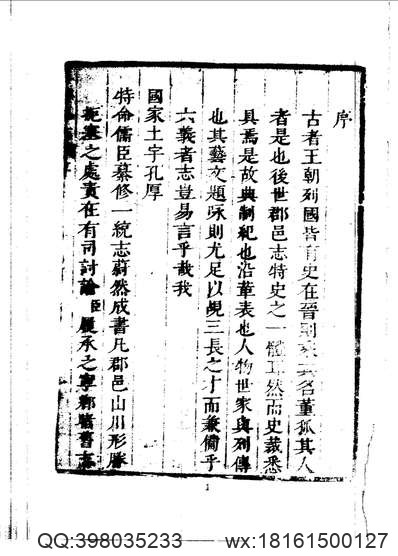 序
古者王朝列國皆有史在晉則 其名董狐其人
者是也後世郡邑志特史之一體耳然而史裁悉
具焉是故典制紀也沿革表也人物世家與列傳
也其藝文題咏則尤足以覘三長之才而兼備乎
六義者志豈易言乎哉我
國家土宇孔厚
特命儒臣纂修一統志蔚然成書凡郡邑山川形勝
扼塞之處責在有司討論臣履承之寧鄉舊志
1
QQ:398035233 wx:18161500127